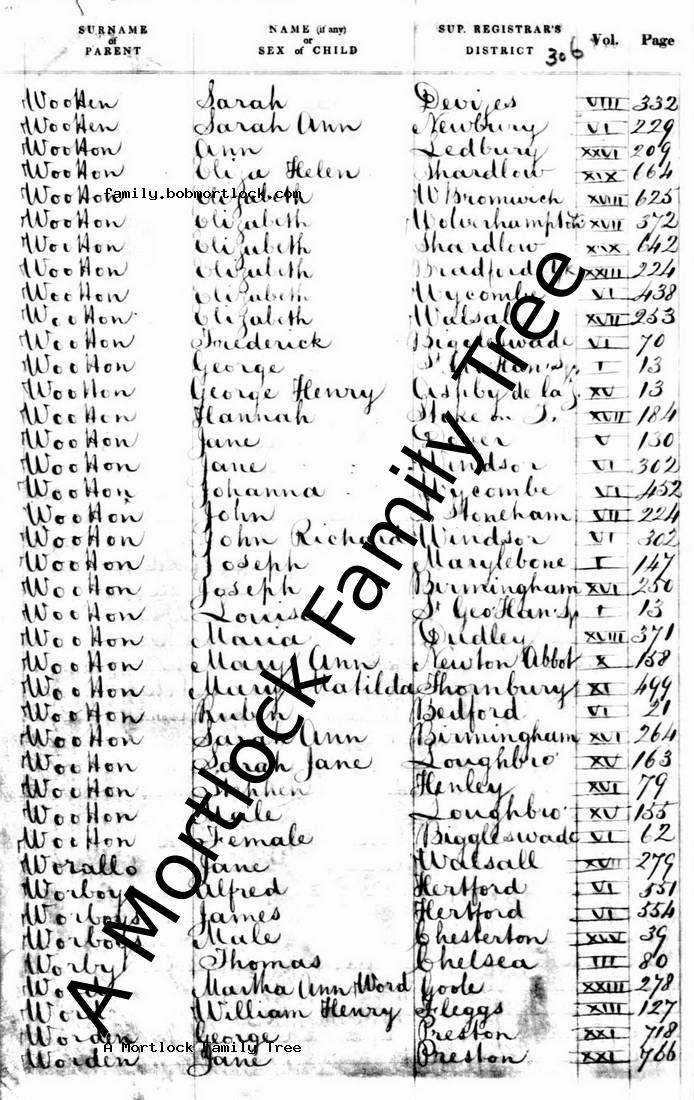 SURNAME of PARENT NAME (if any) or SEX of CHILD SUP. REGISTRAR'S DISTRICT 306 Vol. Page
Wootten Sarah Devizes VIII 332
Wootten Sarah Ann Newbury VI 229
Wootton Ann Ledbury XXVI 209
Wootton Eliza Helen Shardlow XIX 664
family.bobmortlock.com
Wootton Elizabeth W Bromwich XVIII 625
Wootton Elizabeth Wolverhampton XVII 372
Wootton Elizabeth Shardlow XIX 642
Wootton Elizabeth Bradford XXIII 224
Wootton Elizabeth Wycombe VI 438
Wootton Elizabeth Walsall XVII 253
Wootton Frederick Biggleswade VI 70
Wootton George St Geo Han Sq I 13
Wootton George Henry Ashby de la Z. XV 13
Wootton Hannah Stoke on T. XVII 184
Wootton Jane Dover V 130
Wootton Jane Windsor VI 302
Wootton Johanna Wycombe VI 452
Wootton John S Stoneham VII 224
Wootton John Richard Windsor VI 302
Wootton Joseph Marylebone I 147
Wootton Joseph Birmingham XVI 250
Wootton Louisa St Geo Han Sq I 13
Wootton Maria Dudley XVIII 371
Wootton Mary Ann Newton Abbot X 158
Wootton Mary Matilda Thornbury XI 499
Wootton Ruben Bedford VI 21
Wootton Sarah Ann Birmingham XVI 264
Wootton Sarah Jane Loughbro' XV 163
Wootton Stephen Henley XVI 79
Wootton Male Loughbro' XV 155
Wootton Female Biggleswade VI 62
Worallo Jane Walsall XVII 279
Worboys Alfred Hertford VI 551
Worboys James Hertford VI 554
Worboys Male Chesterton XIV 39
Worby Thomas Chelsea III 80
Word Martha Ann Word Goole XXIII 278
Word William Henry Fleggs XIII 127
Worden George Preston XXI 718
A Mortlock Family Tree
Worden Jane Preston XXI 766
A Mortlock Family Tree